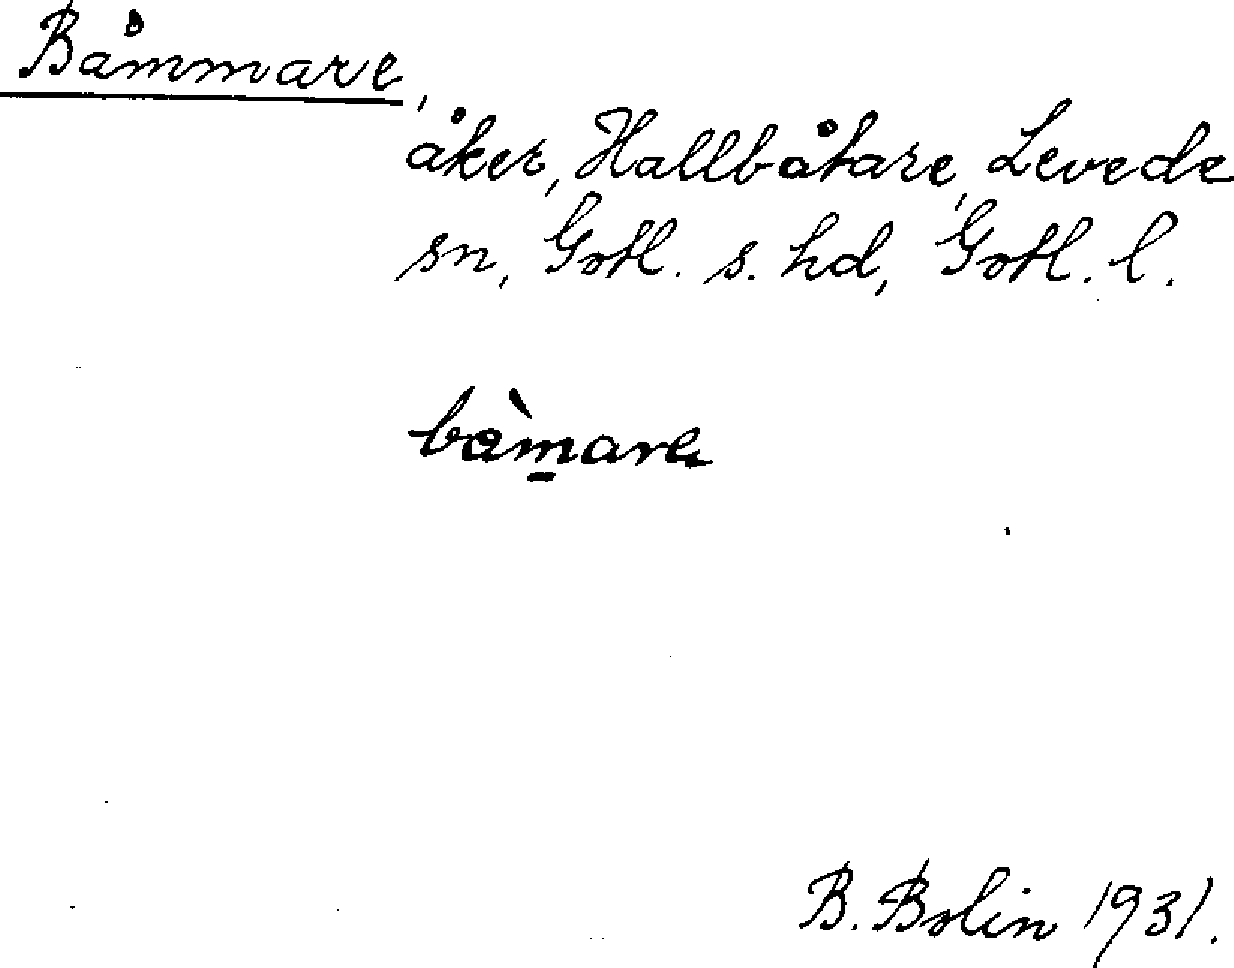 Båmmare,
åker, Hallbåtare, Levede
sn, Gotl. s. hd, Gotl. l.
bàmare
B. Bolin 1931.